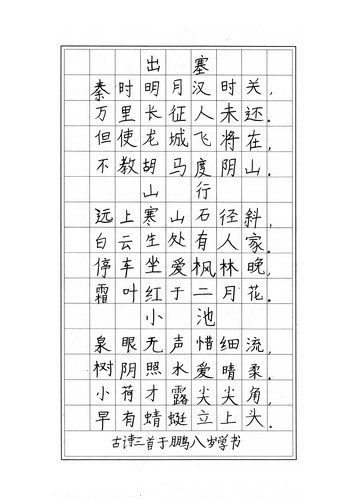 出塞
秦时明月汉时关,
万里长征人未还.
但使龙城飞将在,
不教胡马度阴山.
山行
远上寒山石径斜,
白云生处有人家.
停车坐爱枫林晚,
霜叶红于二月花.
小池
泉眼无声惜细流,
树阴照水爱晴柔.
小荷才露尖尖角,
早有蜻蜓立上头.
古诗三首于鹏八岁学书